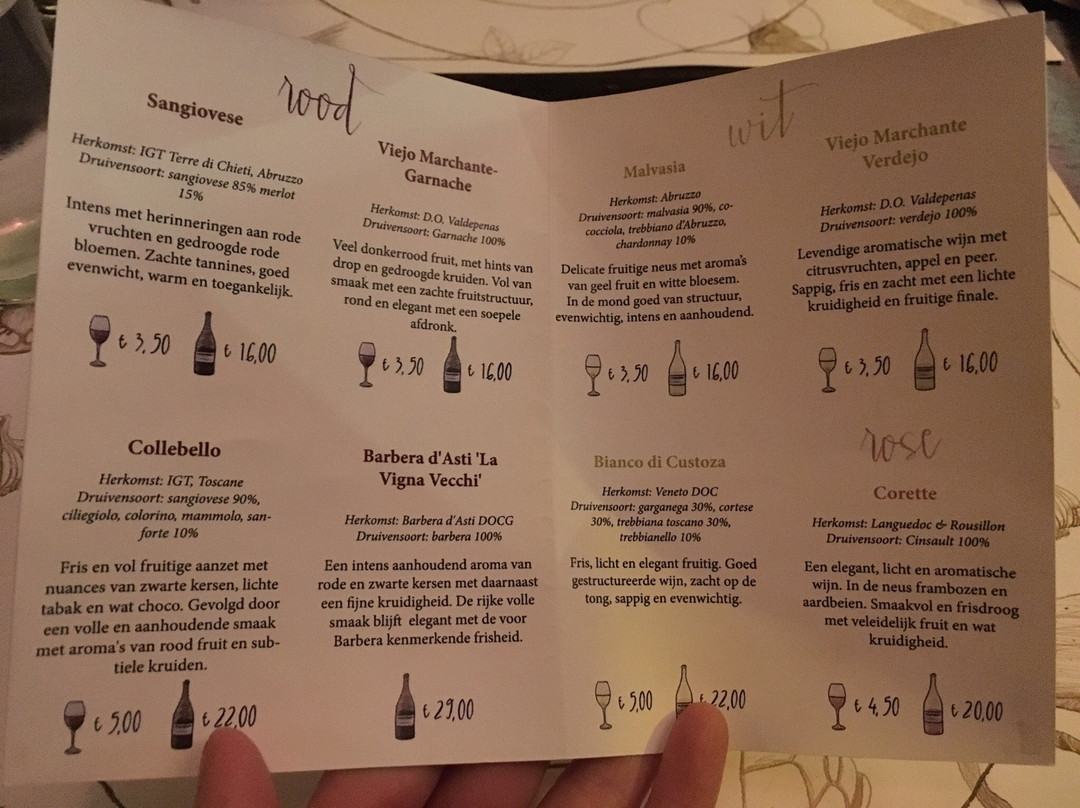 rood
Sangiovese
Herkomst: IGT Terre di Chieti, Abruzzo
Druivensoort: sangiovese 85% merlot
15%
Intens met herinneringen aan rode
vruchten en gedroogde rode
bloemen. Zachte tannines, goed
evenwicht, warm en toegankelijk.
€ 3,50 € 16,00
Viejo Marchante-
Garnache
Herkomst: D.O. Valdepenas
Druivensoort: Garnache 100%
Veel donkerrood fruit, met hints van
drop en gedroogde kruiden. Vol van
smaak met een zachte fruitstructuur,
rond en elegant met een soepele
afdronk.
€ 3,50 € 16,00
Collebello
Herkomst: IGT, Toscane
Druivensoort: sangiovese 90%,
ciliegiolo, colorino, mammolo, san-
forte 10%
Fris en vol fruitige aanzet met
nuances van zwarte kersen, lichte
tabak en wat choco. Gevolgd door
een volle en aanhoudende smaak
met aroma's van rood fruit en sub-
tiele kruiden.
€ 5,00 € 22,00
Barbera d'Asti 'La
Vigna Vecchi'
Herkomst: Barbera d'Asti DOCG
Druivensoort: barbera 100%
Een intens aanhoudend aroma van
rode en zwarte kersen met daarnaast
een fijne kruidigheid. De rijke volle
smaak blijft elegant met de voor
Barbera kenmerkende frisheid.
€ 29,00
wit
Malvasia
Herkomst: Abruzzo
Druivensoort: malvasia 90%, co-
cocciola, trebbiano d'Abruzzo,
chardonnay 10%
Delicate fruitige neus met aroma's
van geel fruit en witte bloesem.
In de mond goed van structuur,
evenwichtig, intens en aanhoudend.
€ 3,50 € 16,00
Viejo Marchante
Verdejo
Herkomst: D.O. Valdepenas
Druivensoort: verdejo 100%
Levendige aromatische wijn met
citrusvruchten, appel en peer.
Sappig, fris en zacht met een lichte
kruidigheid en fruitige finale.
€ 3,50 € 16,00
Bianco di Custoza
Herkomst: Veneto DOC
Druivensoort: garganega 30%, cortese
30%, trebbiana toscano 30%,
trebbianello 10%
Fris, licht en elegant fruitig. Goed
gestructureerde wijn, zacht op de
tong, sappig en evenwichtig.
€ 5,00 € 22,00
rose
Corette
Herkomst: Languedoc & Rousillon
Druivensoort: Cinsault 100%
Een elegant, licht en aromatische
wijn. In de neus frambozen en
aardbeien. Smaakvol en frisdroog
met veleidelijk fruit en wat
kruidigheid.
€ 4,50 € 20,00